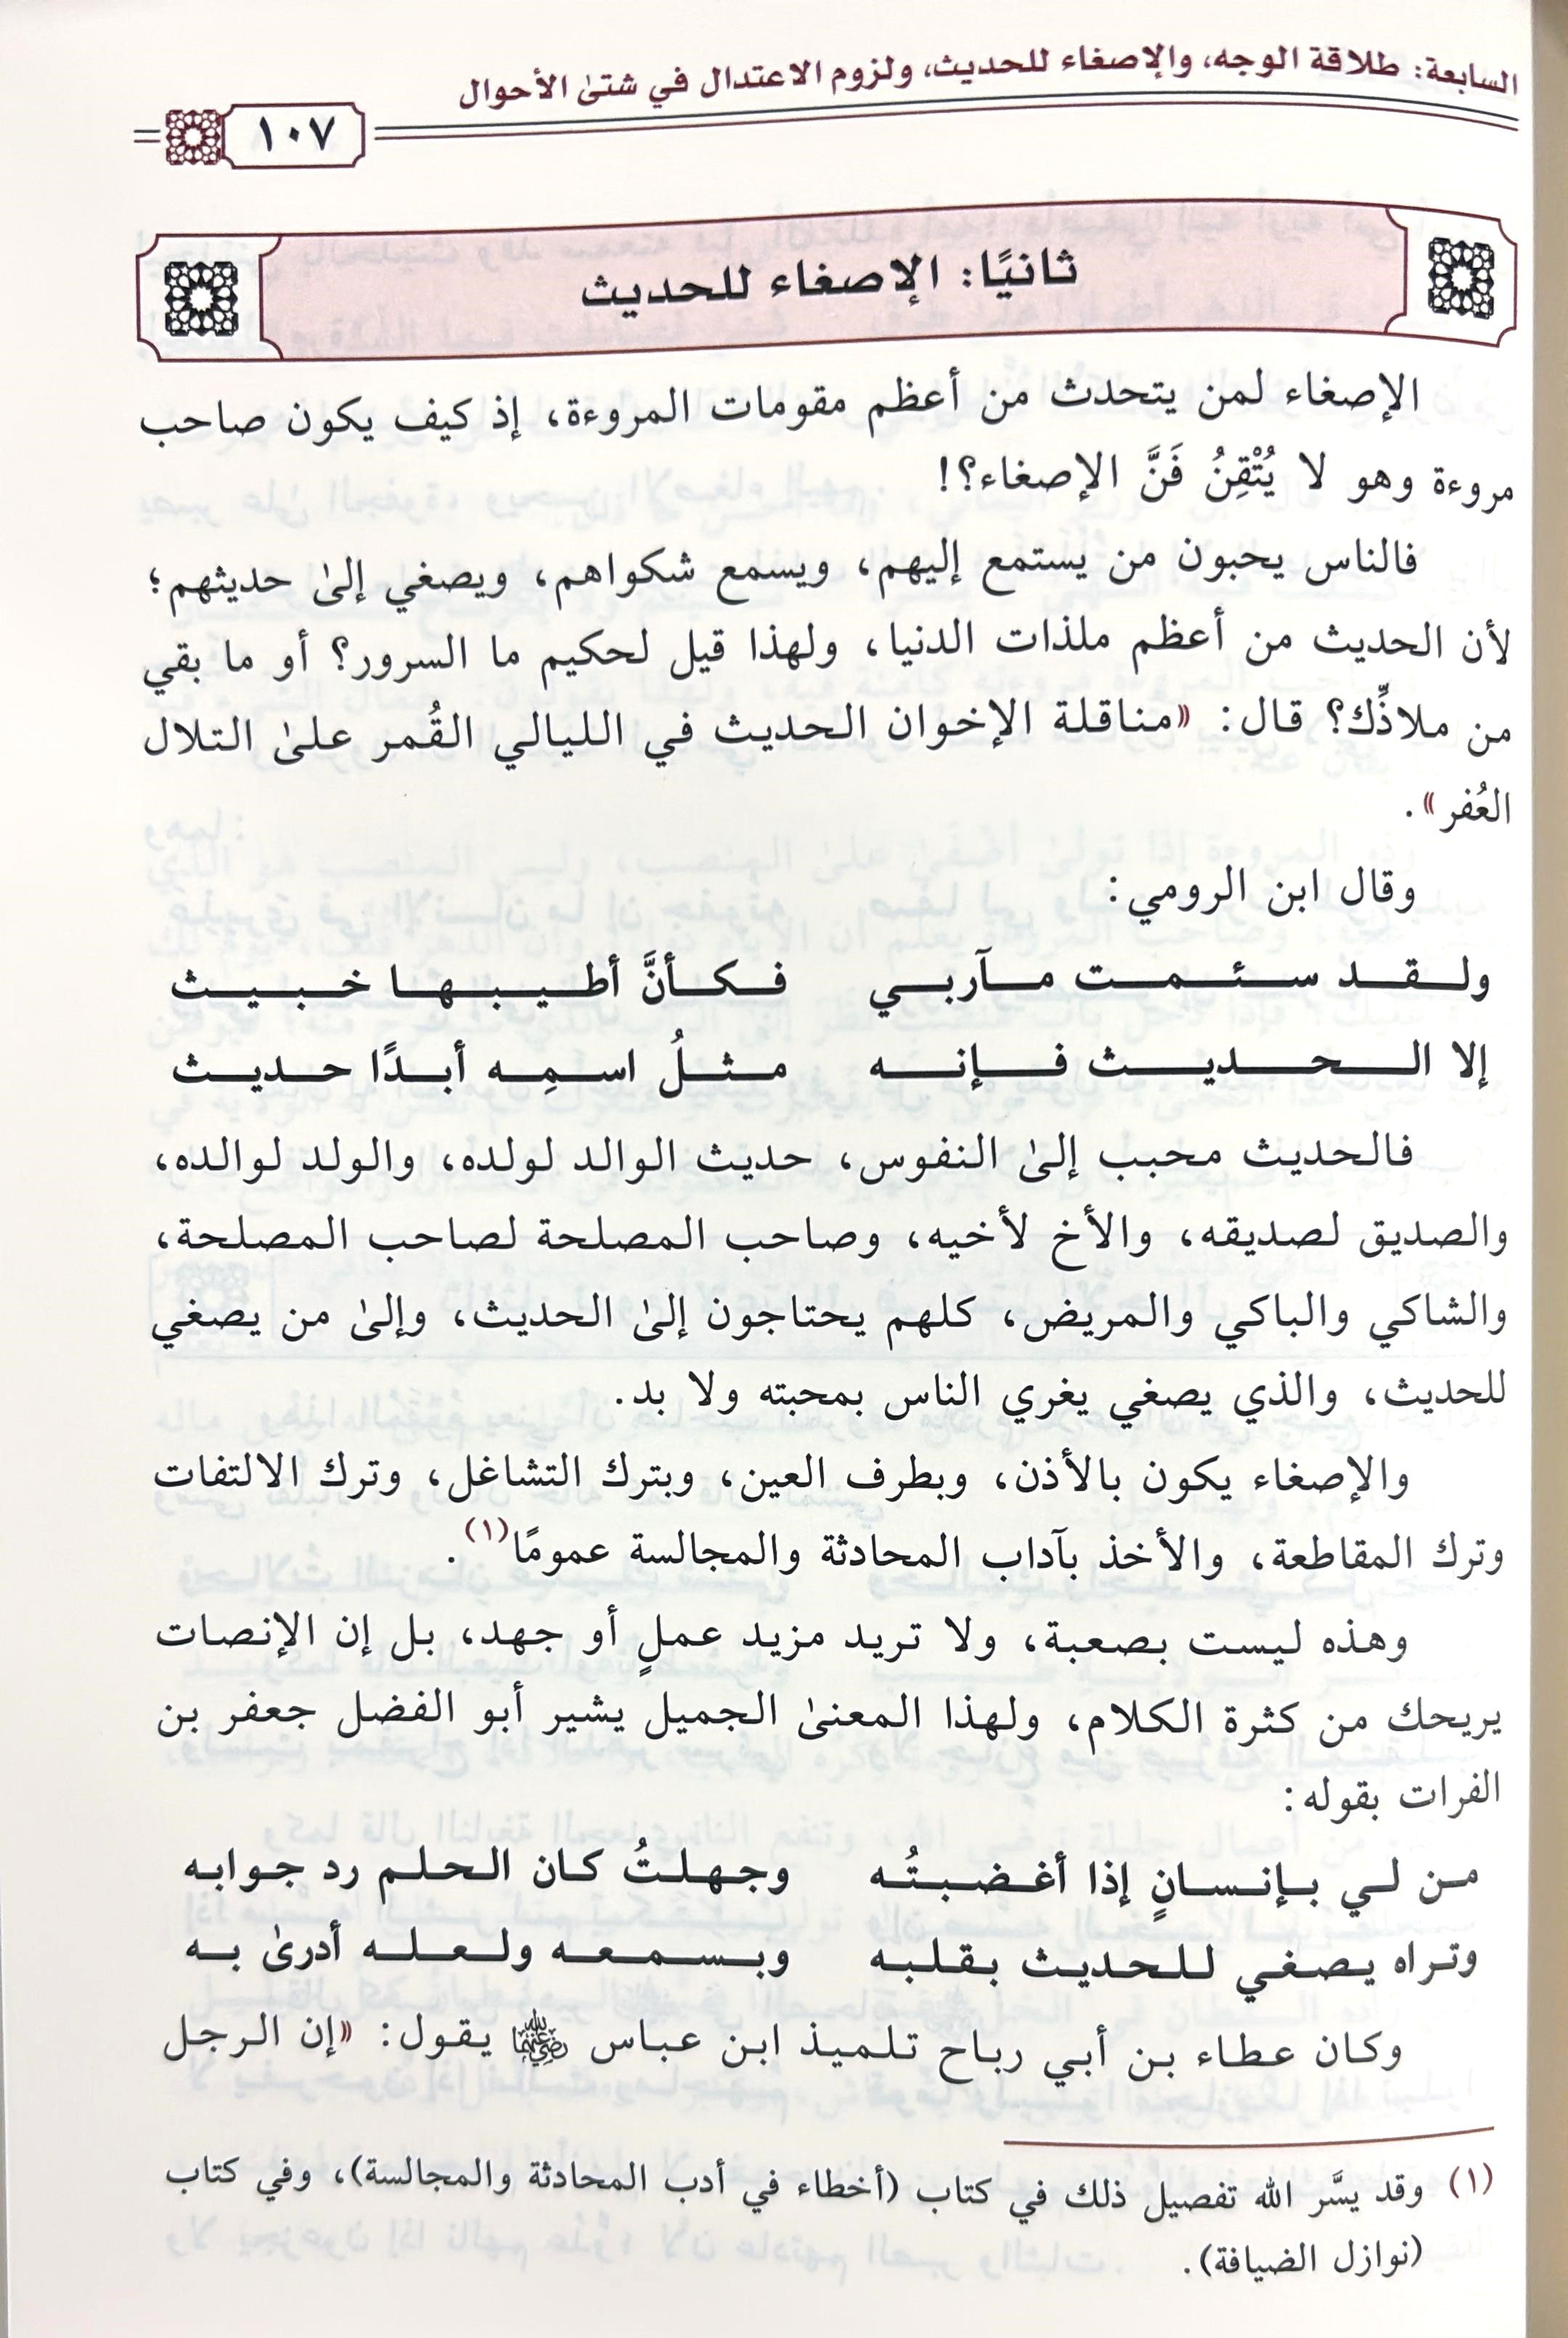 السابعة: طلاقة الوجه، والإصغاء للحديث، ولزوم الاعتدال في شتىٰ الأحوال
١٠٧
ثانيًا: الإصغاء للحديث
الإصغاء لمن يتحدث من أعظم مقومات المروءة، إذ كيف يكون صاحب
مروءة وهو لا يُتْقِنُ فَنَّ الإصغاء؟!
فالناس يحبون من يستمع إليهم، ويسمع شكواهم، ويصغي إلىٰ حديثهم؛
لأن الحديث من أعظم ملذات الدنيا، ولهذا قيل لحكيم ما السرور؟ أو ما بقي
من ملاذِّك؟ قال: «مناقلة الإخوان الحديث في الليالي القُمر علىٰ التلال
العُفر».
وقال ابن الرومي:
ولقد سئمت مآربي فكأنَّ أطيبها خبيث
إلا الحديث فإنه مثلُ اسمِه أبدًا حديث
فالحديث محبب إلىٰ النفوس، حديث الوالد لولده، والولد لوالده،
والصديق لصديقه، والأخ لأخيه، وصاحب المصلحة لصاحب المصلحة،
والشاكي والباكي والمريض، كلهم يحتاجون إلىٰ الحديث، وإلىٰ من يصغي
للحديث، والذي يصغي يغري الناس بمحبته ولا بد.
والإصغاء يكون بالأذن، وبطرف العين، وبترك التشاغل، وترك الالتفات
وترك المقاطعة، والأخذ بآداب المحادثة والمجالسة عمومًا(١).
وهذه ليست بصعبة، ولا تريد مزيد عملٍ أو جهد، بل إن الإنصات
يريحك من كثرة الكلام، ولهذا المعنىٰ الجميل يشير أبو الفضل جعفر بن
الفرات بقوله:
من لي بإنسانٍ إذا أغضبتُه وجهلتُ كان الحلم رد جوابه
وتراه يصغي للحديث بقلبه وبسمعه ولعله أدرىٰ به
وكان عطاء بن أبي رباح تلميذ ابن عباس رضي الله عنهما يقول: «إن الرجل
(١) وقد يسَّر الله تفصيل ذلك في كتاب (أخطاء في أدب المحادثة والمجالسة)، وفي كتاب
(نوازل الضيافة).